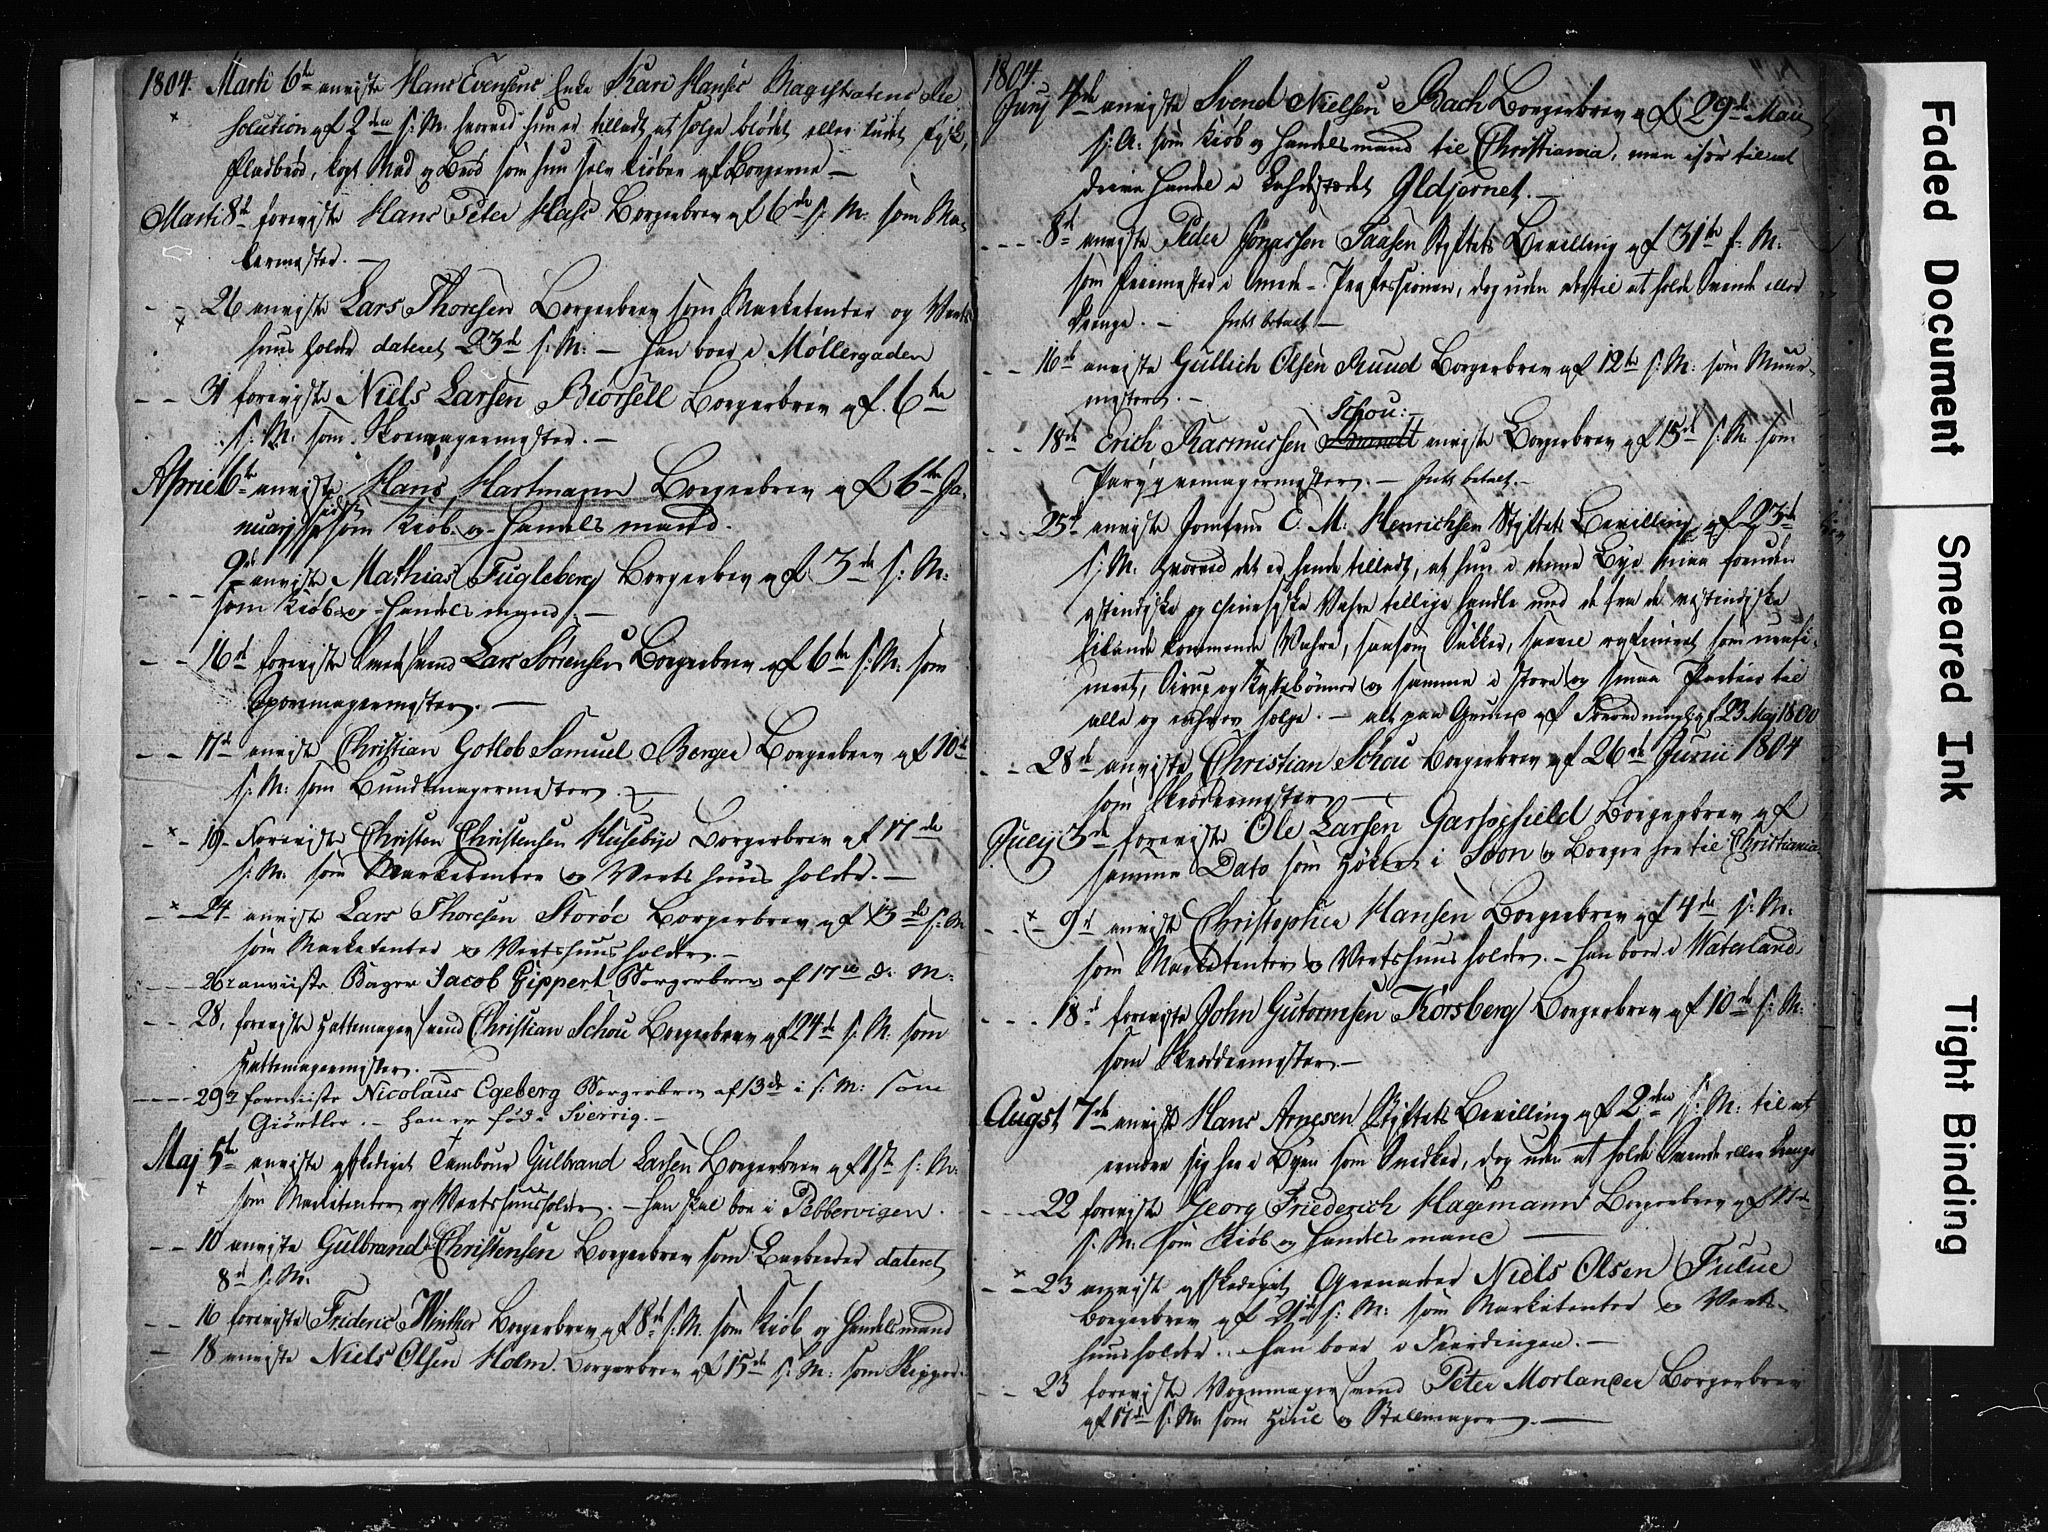 1804. Marti 6te anviste Hans Evensens Enke Kari Hansès Magistratens Re
solution af 2den s: M: hvorved hun er tilladt at sælge blødet eller ludet Fisk,
fladbrød, kogt Mad og Brød som hun selv kiøber af Borgerne —
Marti 8de foreviste Hans Peter Hass Borgerbrev af 6te s: M: som Ma-
lermester. —
- - 26 anviste Lars Thoresen Borgerbrev som Marketenter og Verts
huus holder dateret 23de s: M: — han boer i Møllergaden
- - 31 foreviste Niels Larsen Biörsell Borgerbrev af 6te
s: M: som Skomagermester. —
Aprili 6te anviste Hans Hartmann Borgerbrev af 6te Ja-
nuarj som Kiöb- og Handels mand.
9de anviste Mathias Fugleberg Borgerbrev af 3de s: M:
som Kiöb- og Handels mand. —
- - 16de foreviste Smedsvend Lars Sörensen Borgerbrev af 6te s: M: som
Sporemagermester. —
- - 17de anviste Christian Gotlob Samuel Berger Borgerbrev af 10de
s: M: som Bundtmagermester. —
- × 19 - Foreviste Christen Christensen Husebÿe Borgerbrev af 17de
s: M: som Marketenter og Verts huus holder. —
- × 24 anviste Lars Thoresen Storöe Borgerbrev af 13de s: M
som Marketenter og Vertshuusholder. —
- - - 26 anviiste Bager Jacob Gippert Borgerbrev af 17de d: M:
- - - 28, foreviste Hattemagersvend Christian Schou Borgerbrev af 24de s: M: som
Hattemagermester. —
- - - 29de foreviiste Nicolaus Egeberg Borgerbrev af 13de i s: M: som
Giörtler. — Han er föd i Sverrig. —
Maj 5te anviste afskediget Tambour Gulbrand Larsen Borgerbrev af 1ste s: M:
× som Marketenter og Vertshuusholder. — han skal boe i Pebbervigen.
- - 10 anviste Gulbrand Christensen Borgerbrev som Barbeerer dateret
8de s: M.
- - 16 foreviste Frideric Winther Borgerbrev af 8de s: M. som Kiöb og Handelsmand
- 18 anviste Niels Olsen Holm Borgerbrev af 15de s: M: som Skipper.
1804.
Junj 4de anviste Svend Nielsen Bach Borgerbrev af 29de Maii
s: A: som Kiöb og Handelsmand til Christiania, men især til at
drive Handel i Ladestædet Gldjernet. —
- - - 8de anviste Peder Jonassen Saasen Stiftets Bevilling af 31te f: M:
som Friemester i Smede-Professionen, dog uden dertil at holde Svende eller
Drenge. — Intet betalt —
- - 16de anviste Gullich Olsen Ruud Borgerbrev af 12te s: M: som Muur-
mester. —
Schou:
- - 18de Erich Rasmussen Brandt anviste Borgerbrev af 15de s: M: som
Paryqvemagermester. — Intet betalt. —
- - - 25de anviste Jomfrue C. M: Henrichsen Stiftets Bevilling af 23de
s: M: hvorved det er hende tilladt, at hun i denne Bye maa foruden
ostindiske og chinesiske Vahre tillige handle med de fra de vestindiske
Eilande kommende Vahre, saasom Sukker, saavel rafineret som urafi-
neret, Sirup og Kaffebönner og samme i store og smaa Partier til
alle og enhver sælge. — alt paa Grund af Forordning af 23 Maj 1800
- - 28de anviste Christian Schou Borgerbrev af 26de Junii 1804
som Skrædermester —
Julij 3de foreviste Ole Larsen Garsegfield Borgerbrev af
samme Dato som Höker i Soon og Borger her til Christiania.
- - × 9de anviste Christopher Hansen Borgerbrev af 4de s: M:
som Marketenter og Vertshuusholder. — han boer i Waterland.
- - - 18de foreviste John Gutormsen Korsberg Borgerbrev af 10de s: M:
som Skræddermester. —
Augst 7de anviste Hans Arnesen Stiftets Bevilling af 2den s: M: til at
ernære sig her i Byen som Snedker, dog uden at holde Svende eller Drenge
- - - 22 foreviste Georg Friederich Hagemann Borgerbrev af 11de
s: M: som Kiöb og Handels mand —
- × 23 anviste afskediget Grenadeer Niels Olsen Fulue
Borgerbrev af 21de s: M: som Marketenter og Verts-
huusholder. — han boer i Fierdingen. —
- - 23 foreviste Vognmagersvend Peter Morlancer Borgerbrev
af 17de s: M: som Hiul og Stellmager. —
Faded Document
Smeared Ink
Tight Binding